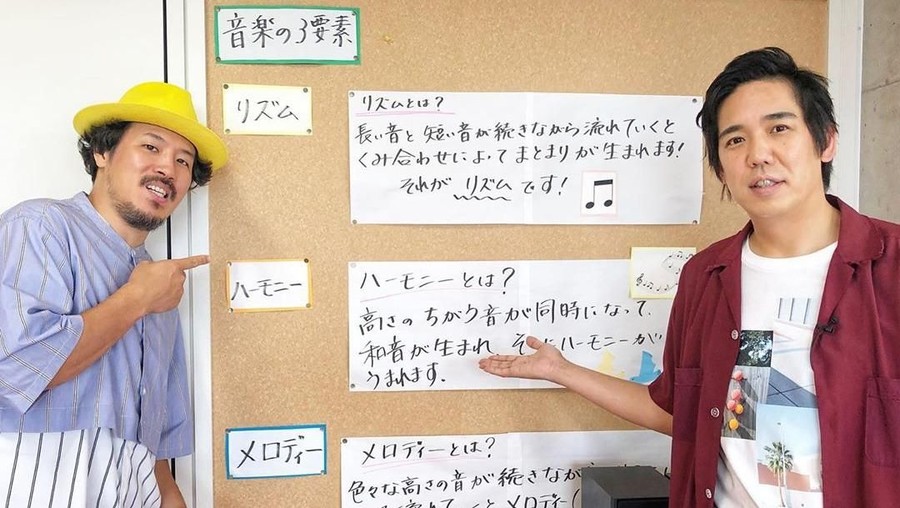 音楽の3要素
リズム
リズムとは?
長い音と短い音が続きながら流れていくと
くみ合わせによってまとまりが生まれます!
それがリズムです!
ハーモニー
ハーモニーとは?
高さのちがう音が同時になって、
和音が生まれ そ ハーモニーが
うまれます。
メロディー
メロディーとは?
色々な高さの音が続きなが